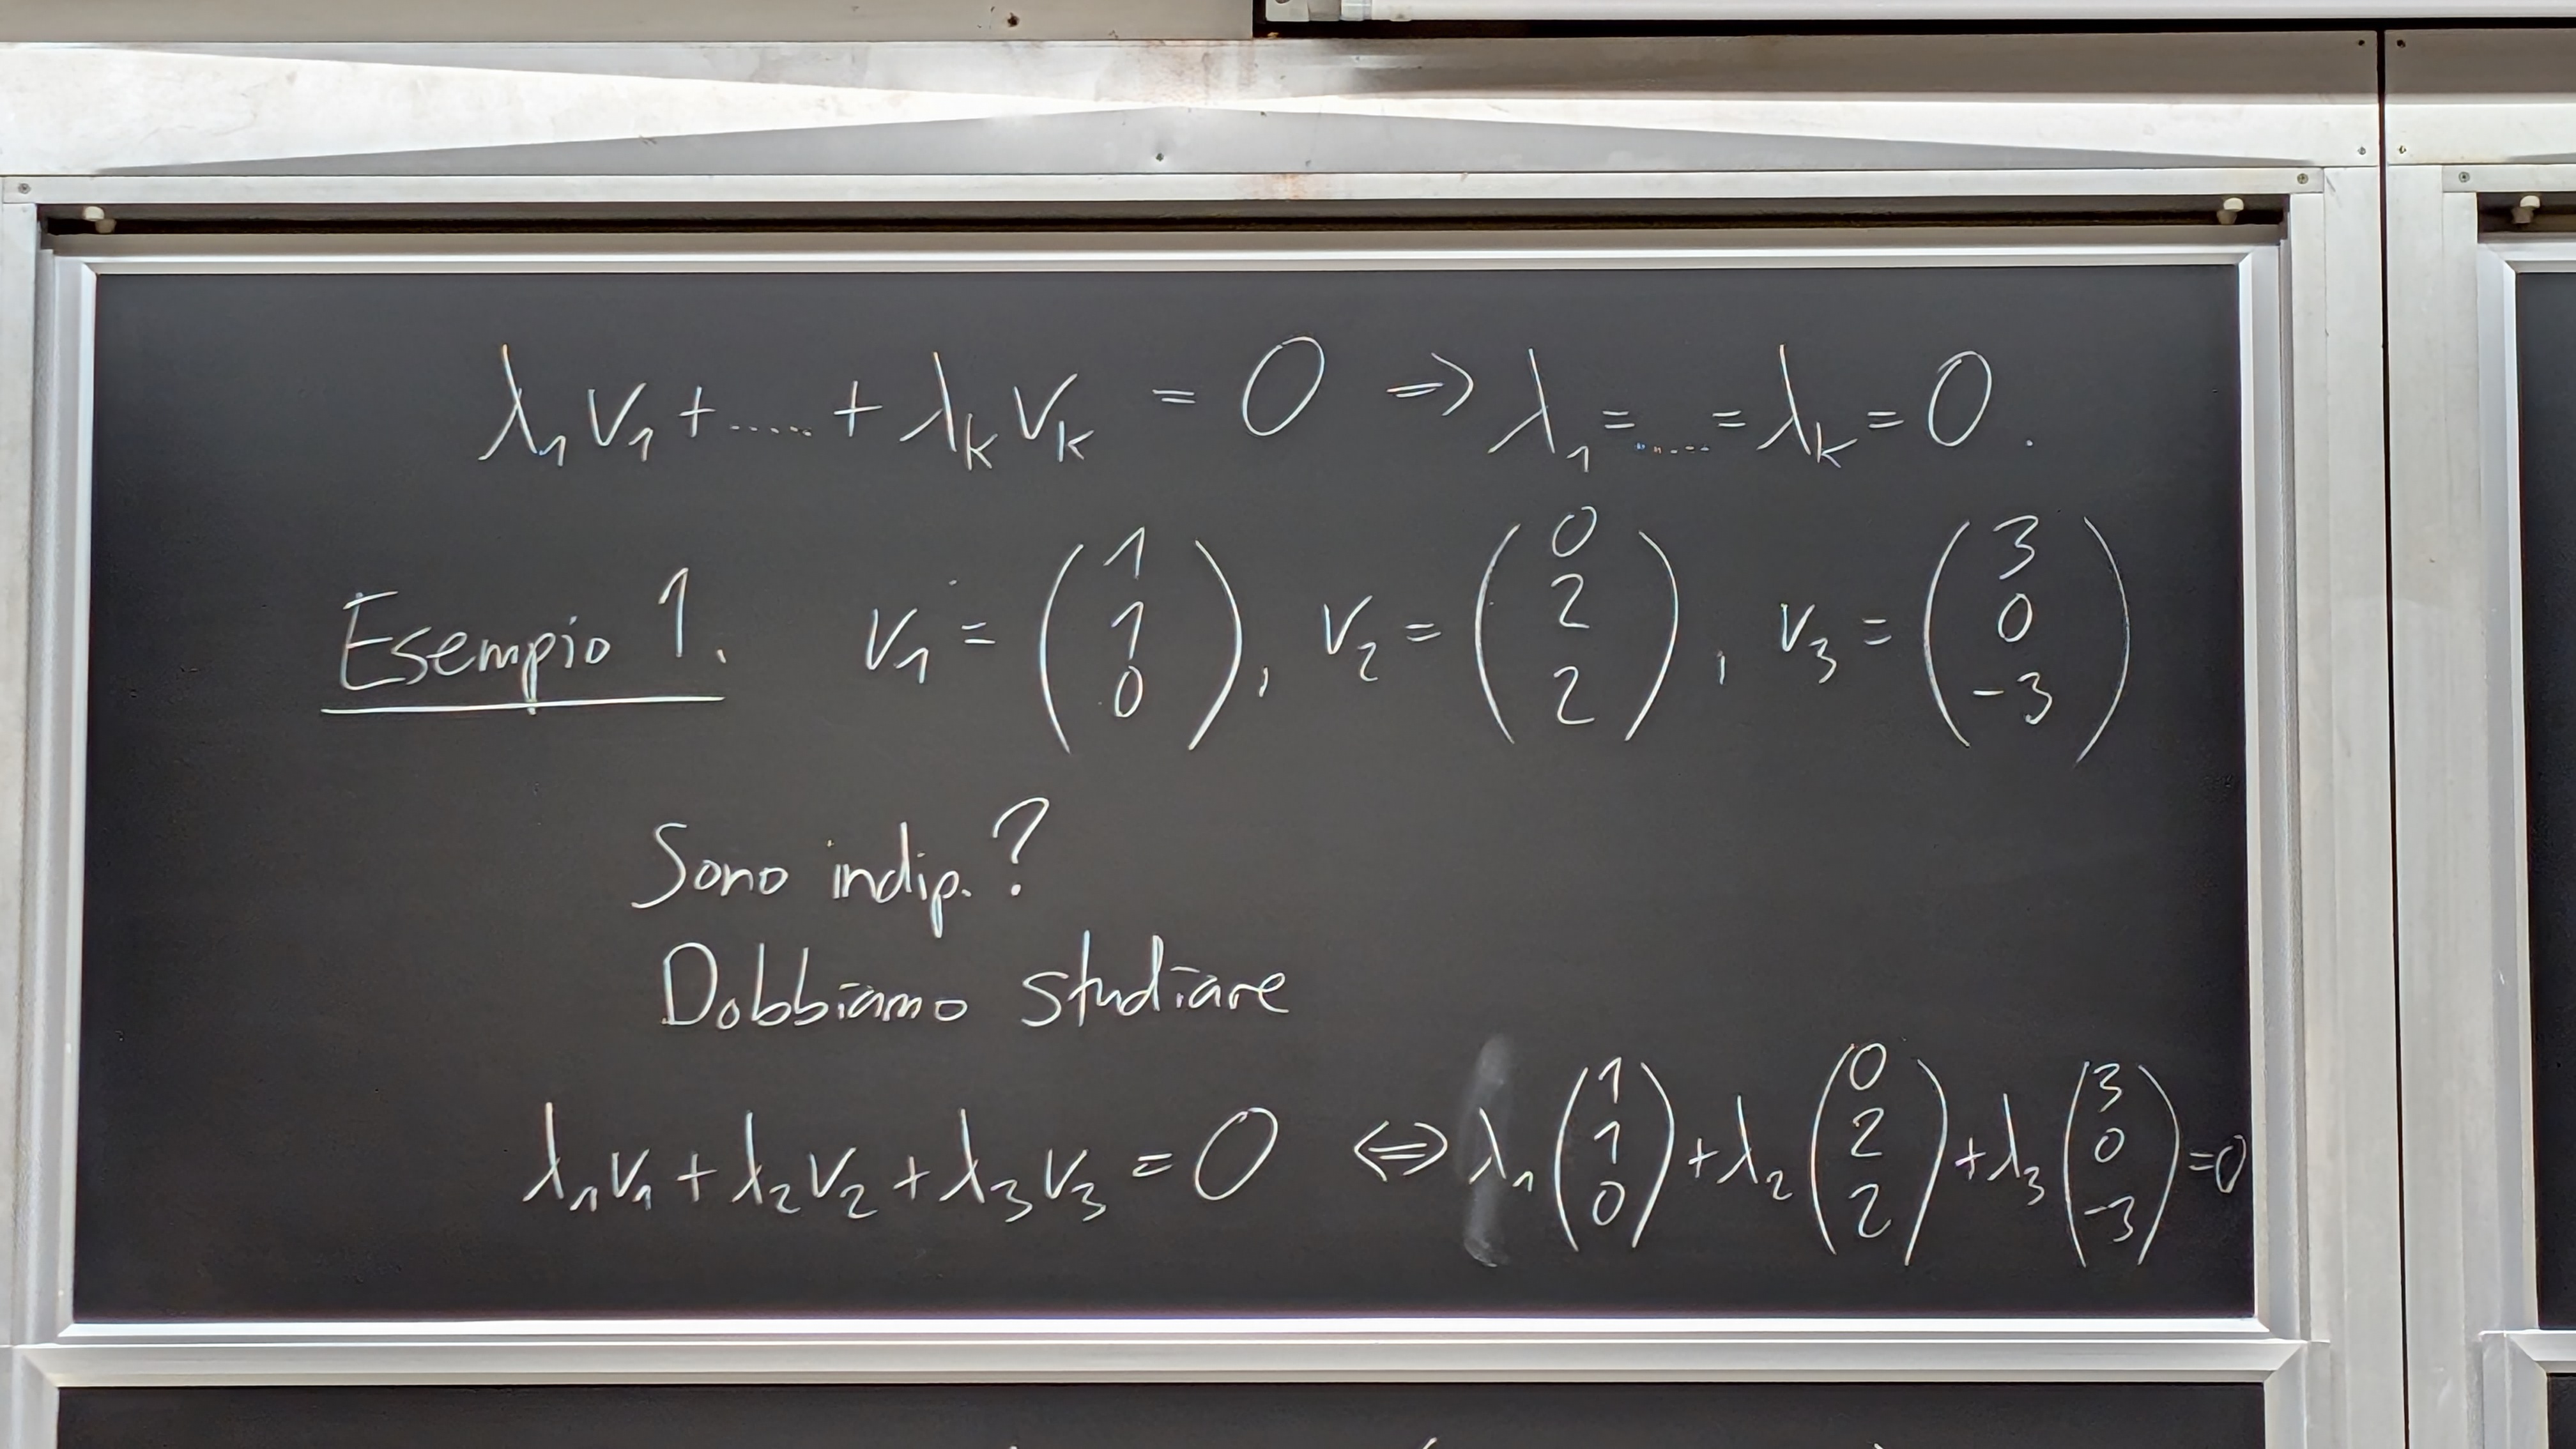 λ₁v₁ + ..... + λₖvₖ = 0 ⇒ λ₁ = ..... = λₖ = 0.
Esempio 1. v₁ = (1 1 0), v₂ = (0 2 2), v₃ = (3 0 -3)
Sono indip.?
Dobbiamo studiare
λ₁v₁ + λ₂v₂ + λ₃v₃ = 0 ⇔ λ₁(1 1 0) + λ₂(0 2 2) + λ₃(3 0 -3) = 0